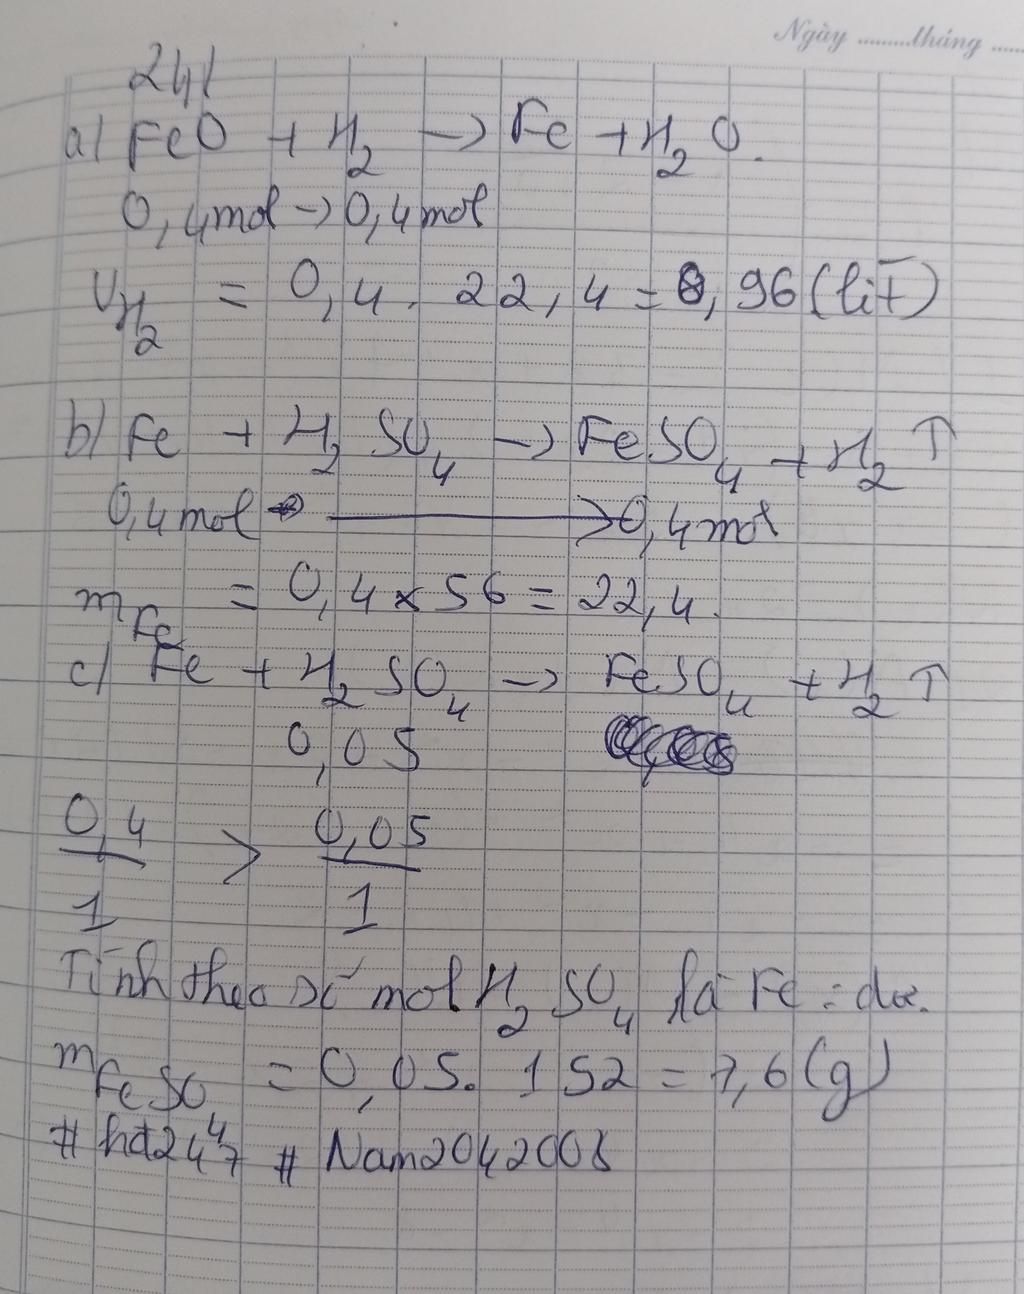 Ngày ........tháng .....
24/
a) FeO + H₂ → Fe + H₂O.
0,4mol → 0,4mol
V_H₂ = 0,4 . 22,4 = 8,96 (lít)
b) Fe + H₂SO₄ → FeSO₄ + H₂ ↑
0,4mol → 0,4mol
m_Fe = 0,4 x 56 = 22,4.
c) Fe + H₂SO₄ → FeSO₄ + H₂ ↑
0,05
0,4/1 > 0,05/1
Tính theo số mol H₂SO₄ là Fe : dư.
m_FeSO₄ = 0,05. 152 = 7,6 (g)
# hđ247 # Nam2042008